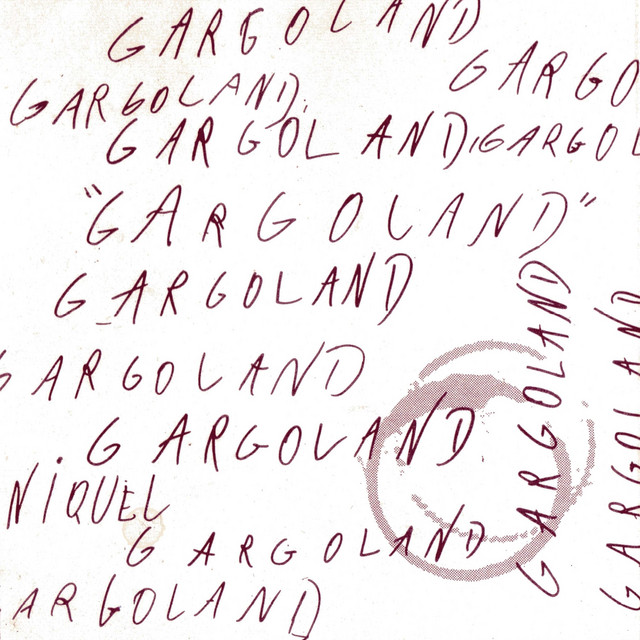 GARGOLAND
GARGO
GARGOLAND,
GARGOLAND,GARGOL
"GARGOLAND"
GARGOLAND
GARGOLAND
GARGOLAND
ARGOLAND
.GARGOLAND
NIQUEL
GARGOLAND
ARGOLAND
GARGOLAND